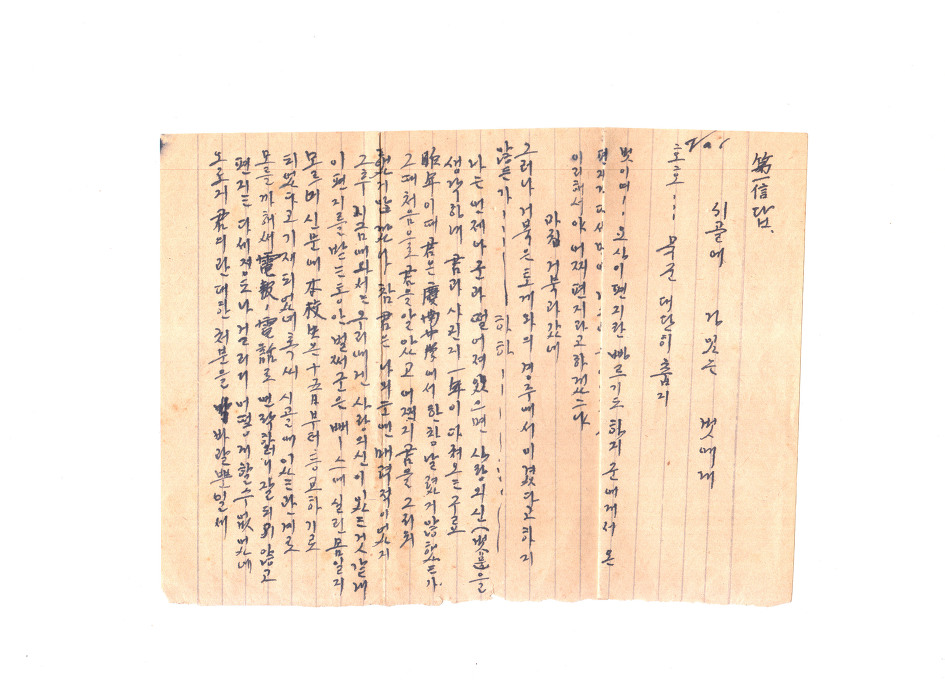 第一信답.
시골에 길있는 벗에게
Vol
흐흐흐... 목군 대단히 춥지
벗이여!.. 요상이 편지란 빠르기도 하지 군에게서 온
편지가 다
이리해서야 어찌 편지라고 하겠느냐
마침 거북과 갔네
그러나 거북은 토게와의 경주에서 이겼다고 하지
않든가 하하
나는 언제나 군과 떨어져 있으면 사랑의신(벗)을
생각하네 君과 사귄지 一年이 다쳐오는구료
昨年 이때 君은 慶南中學에서 한창 날렸거 않했는가
그때 처음으로 君을 알았고 어찌 君을 그리워
했거 참 君은 나의 눈엔 매력적이었지
그후 지금에 와서는 우리에겐 사랑의신이 왔는것 같애
이 편지를 받는 동안 벌써 군은 뻐ー스에 실린 몸일지
모르며 신문에 本校 보은 十五日부터 등교하기로
되었다고 기재되었네 혹씨 시골에 있는 관게로
모를까 해서 電報, 電話로 연락할려니 잘 되지 않고
편지는 다 세 걸리니 어떻게 할 수 없었네
오로지 君의 관대한 처분을 바랄뿐일세